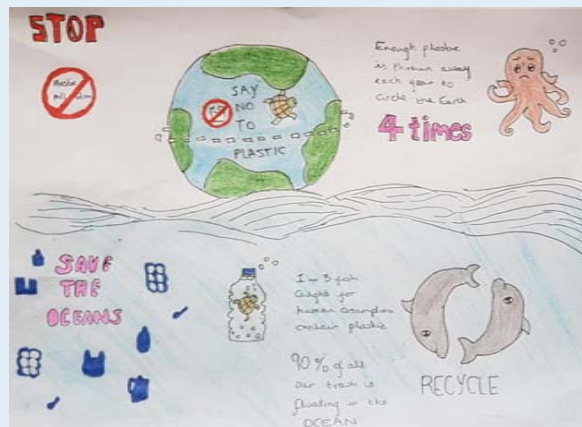 STOP
SAY
NO
TO
PLASTIC
Enough plastic
is thrown away
each year to
circle the Earth
4 times
SAVE
THE
OCEANS
1 in 3 fish
caught for
human consumption
contain plastic
90% of all
our trash is
floating in the
OCEAN
RECYCLE